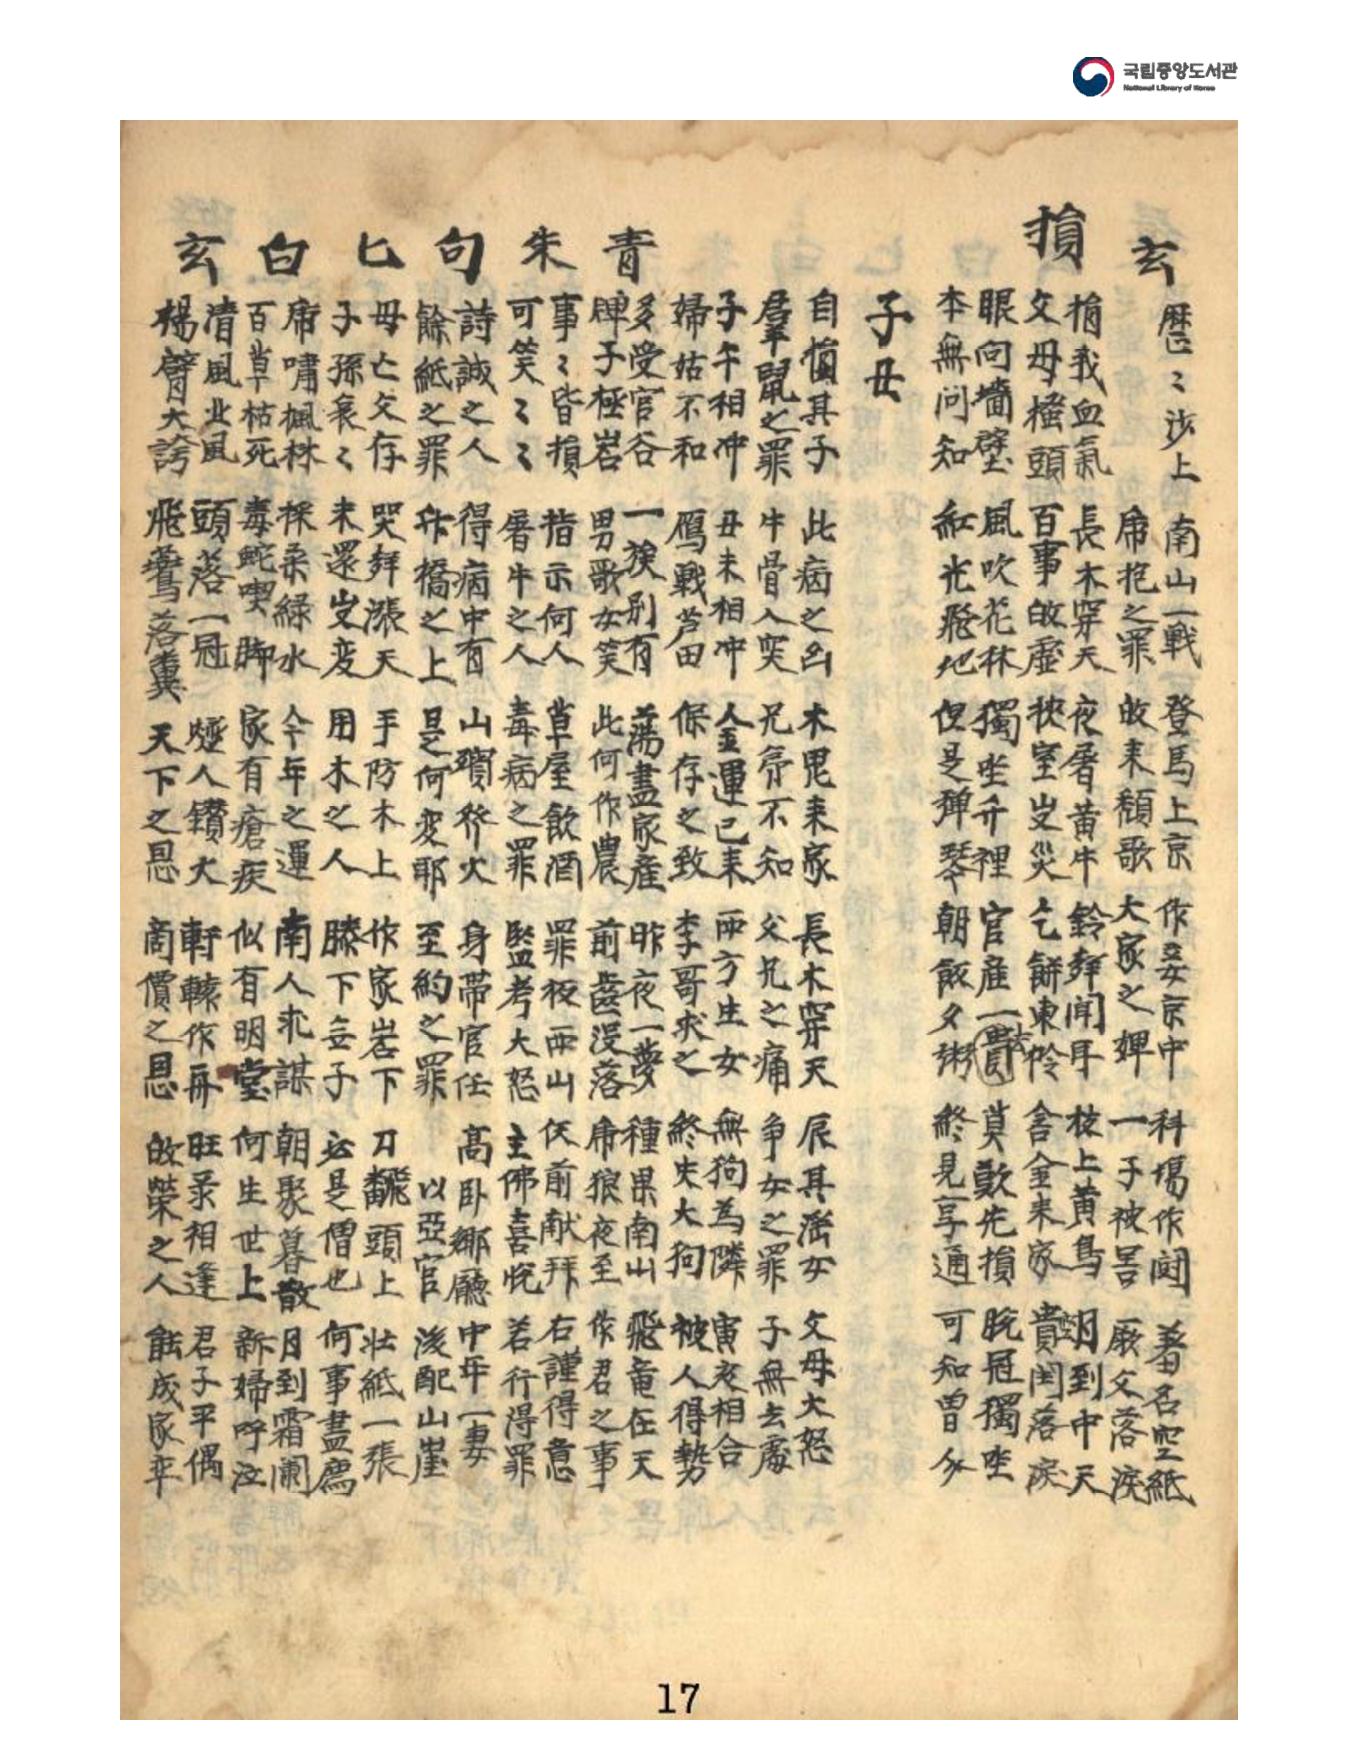 국립중앙도서관
National Library of Korea
玄 歷〻沙上 南山一戰 登馬上京 作妾京中 科場作闼 蓄名空紙
席抱之罪 故来頹歌 大家之婢 一子被害 厥父落淚
損 損我血氣 長木穿天 夜屠黄牛 鈴聲聞耳 枝上黄鳥 明到中天
父母搔頭 百事故虛 狹室出災 乞餠東怜 舍金来家 貴閏落淚
眼向墻壁 風吹花林 獨坐千裡 官産一貫 莫歎先損 脫冠獨坐
本無问知 紅光飛地 但是弹琴 朝飯夕粥 終見亨通 可知曽分
子母
自損其子 此病之凶 木鬼来家 長木穿天 辰其滛女 父母大怒
羣鼠之罪 牛骨入突 兄弟不知 父兄之痛 争女之罪 子無去處
子午相冲 丑未相冲 金運已来 两方生女 無狗為隣 寅亥相合
婦姑不和 鴈戰芦田 保存之致 李哥求之 終失大狗 被人得勢
青 多受官谷 一族别有 蕩盡家産 昨夜一夢 種果南山 飛竜在天
牌子極岩 男歌女笑 此何作農 前齒没落 席狼夜至 作君之事
事〻皆損 指示何人 草屋飮酒 罪极西山 伏前献拜 右謹得意
朱 可笑〻〻 屠牛之人 毒病之罪 監考大怒 主佛喜悅 若行得罪
詩誠之人 得病中有 山積發火 身帶官任 高卧鄕廳 中年一妻
句 餘紙之罪 外橋之上 是何变耶 至約之罪 以亞官 浚配山崖
母亡父存 哭聲漲天 手防木上 作家岩下 刀飜頭上 壮紙一張
匕 子孫衰〻 未還出变 用木之人 膝下無子 必是僧也 何事盡窝
席嘯楓林 探柔緑水 今年之運 南人求謀 朝聚暮散 月到霜阑
白 百草枯死 毒蛇喫脚 家有瘡疾 似有明堂 何生世上 新婦呼泣
清風北風 頭落一冠 燈人鑽大 軒轅作舟 旺录相逢 君子平偶
玄 揚臂大誇 飛鶯落糞 天下之恩 商價之恩 故榮之人 能成家卒
17